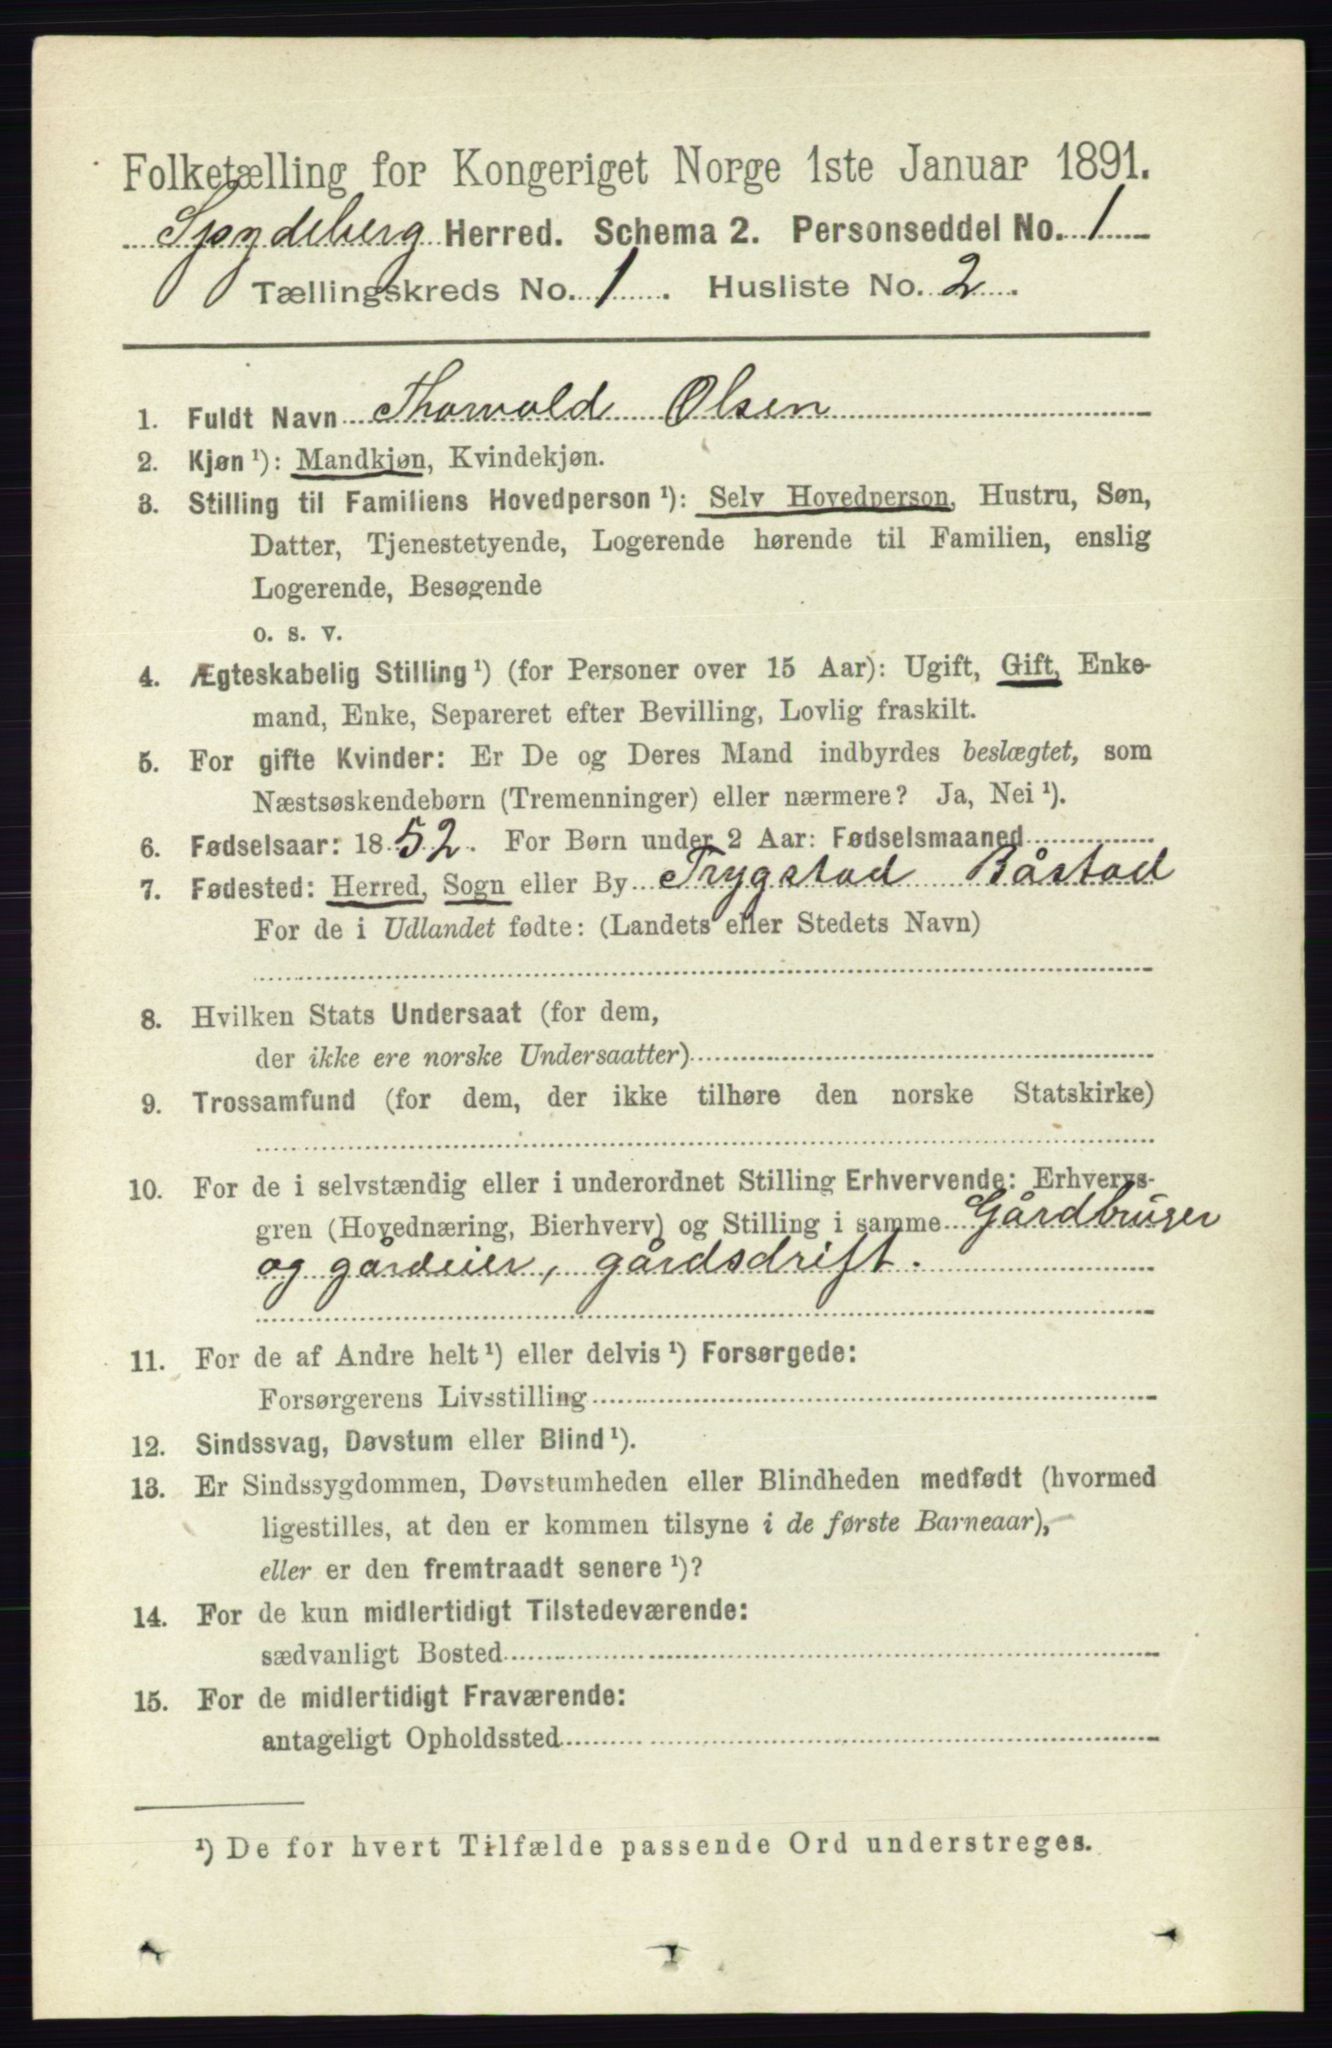 Folketælling for Kongeriget Norge 1ste Januar 1891.
Spydeberg Herred. Schema 2. Personseddel No. 1
Tællingskreds No. 1. Husliste No. 2.
1. Fuldt Navn Thorvald Olsen
2. Kjøn ¹): Mandkjøn, Kvindekjøn.
3. Stilling til Familiens Hovedperson ¹): Selv Hovedperson, Hustru, Søn,
Datter, Tjenestetyende, Logerende hørende til Familien, enslig
Logerende, Besøgende
o. s. v.
4. Ægteskabelig Stilling ¹) (for Personer over 15 Aar): Ugift, Gift, Enke-
mand, Enke, Separeret efter Bevilling, Lovlig fraskilt.
5. For gifte Kvinder: Er De og Deres Mand indbyrdes beslægtet, som
Næstsøskendebørn (Tremenninger) eller nærmere? Ja, Nei ¹).
6. Fødselsaar: 1852. For Børn under 2 Aar: Fødselsmaaned
7. Fødested: Herred, Sogn eller By Trygstad Båstad
For de i Udlandet fødte: (Landets eller Stedets Navn)
8. Hvilken Stats Undersaat (for dem,
der ikke ere norske Undersaatter)
9. Trossamfund (for dem, der ikke tilhøre den norske Statskirke)
10. For de i selvstændig eller i underordnet Stilling Erhvervende: Erhvervs-
gren (Hovednæring, Bierhverv) og Stilling i samme Gårdbruger
og gårdeier, gårdsdrift.
11. For de af Andre helt ¹) eller delvis ¹) Forsørgede:
Forsørgerens Livsstilling
12. Sindssvag, Døvstum eller Blind ¹).
13. Er Sindssygdommen, Døvstumheden eller Blindheden medfødt (hvormed
ligestilles, at den er kommen tilsyne i de første Barneaar),
eller er den fremtraadt senere ¹)?
14. For de kun midlertidigt Tilstedeværende:
sædvanligt Bosted
15. For de midlertidigt Fraværende:
antageligt Opholdssted
¹) De for hvert Tilfælde passende Ord understreges.